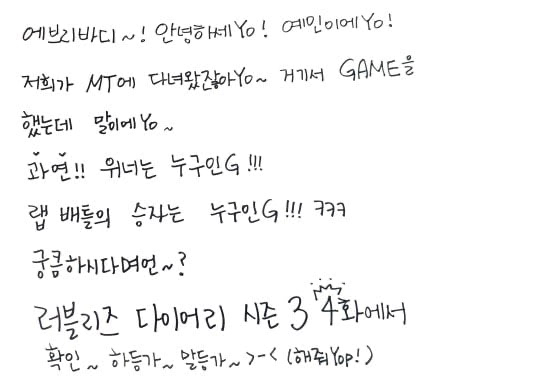 에브리바디~! 안녕하세Yo! 예민이에Yo!
저희가 MT에 다녀왔잖아Yo~ 거기서 GAME을
했는데 말이에Yo~
과연!! 위너는 누구인G!!!
랩 배틀의 승자는 누구인G!!! ㅋㅋㅋ
궁금하시다며언~?
러블리즈 다이어리 시즌 3 4화에서
확인~ 하등가~ 말등가~ >-< (해줘Yop!)